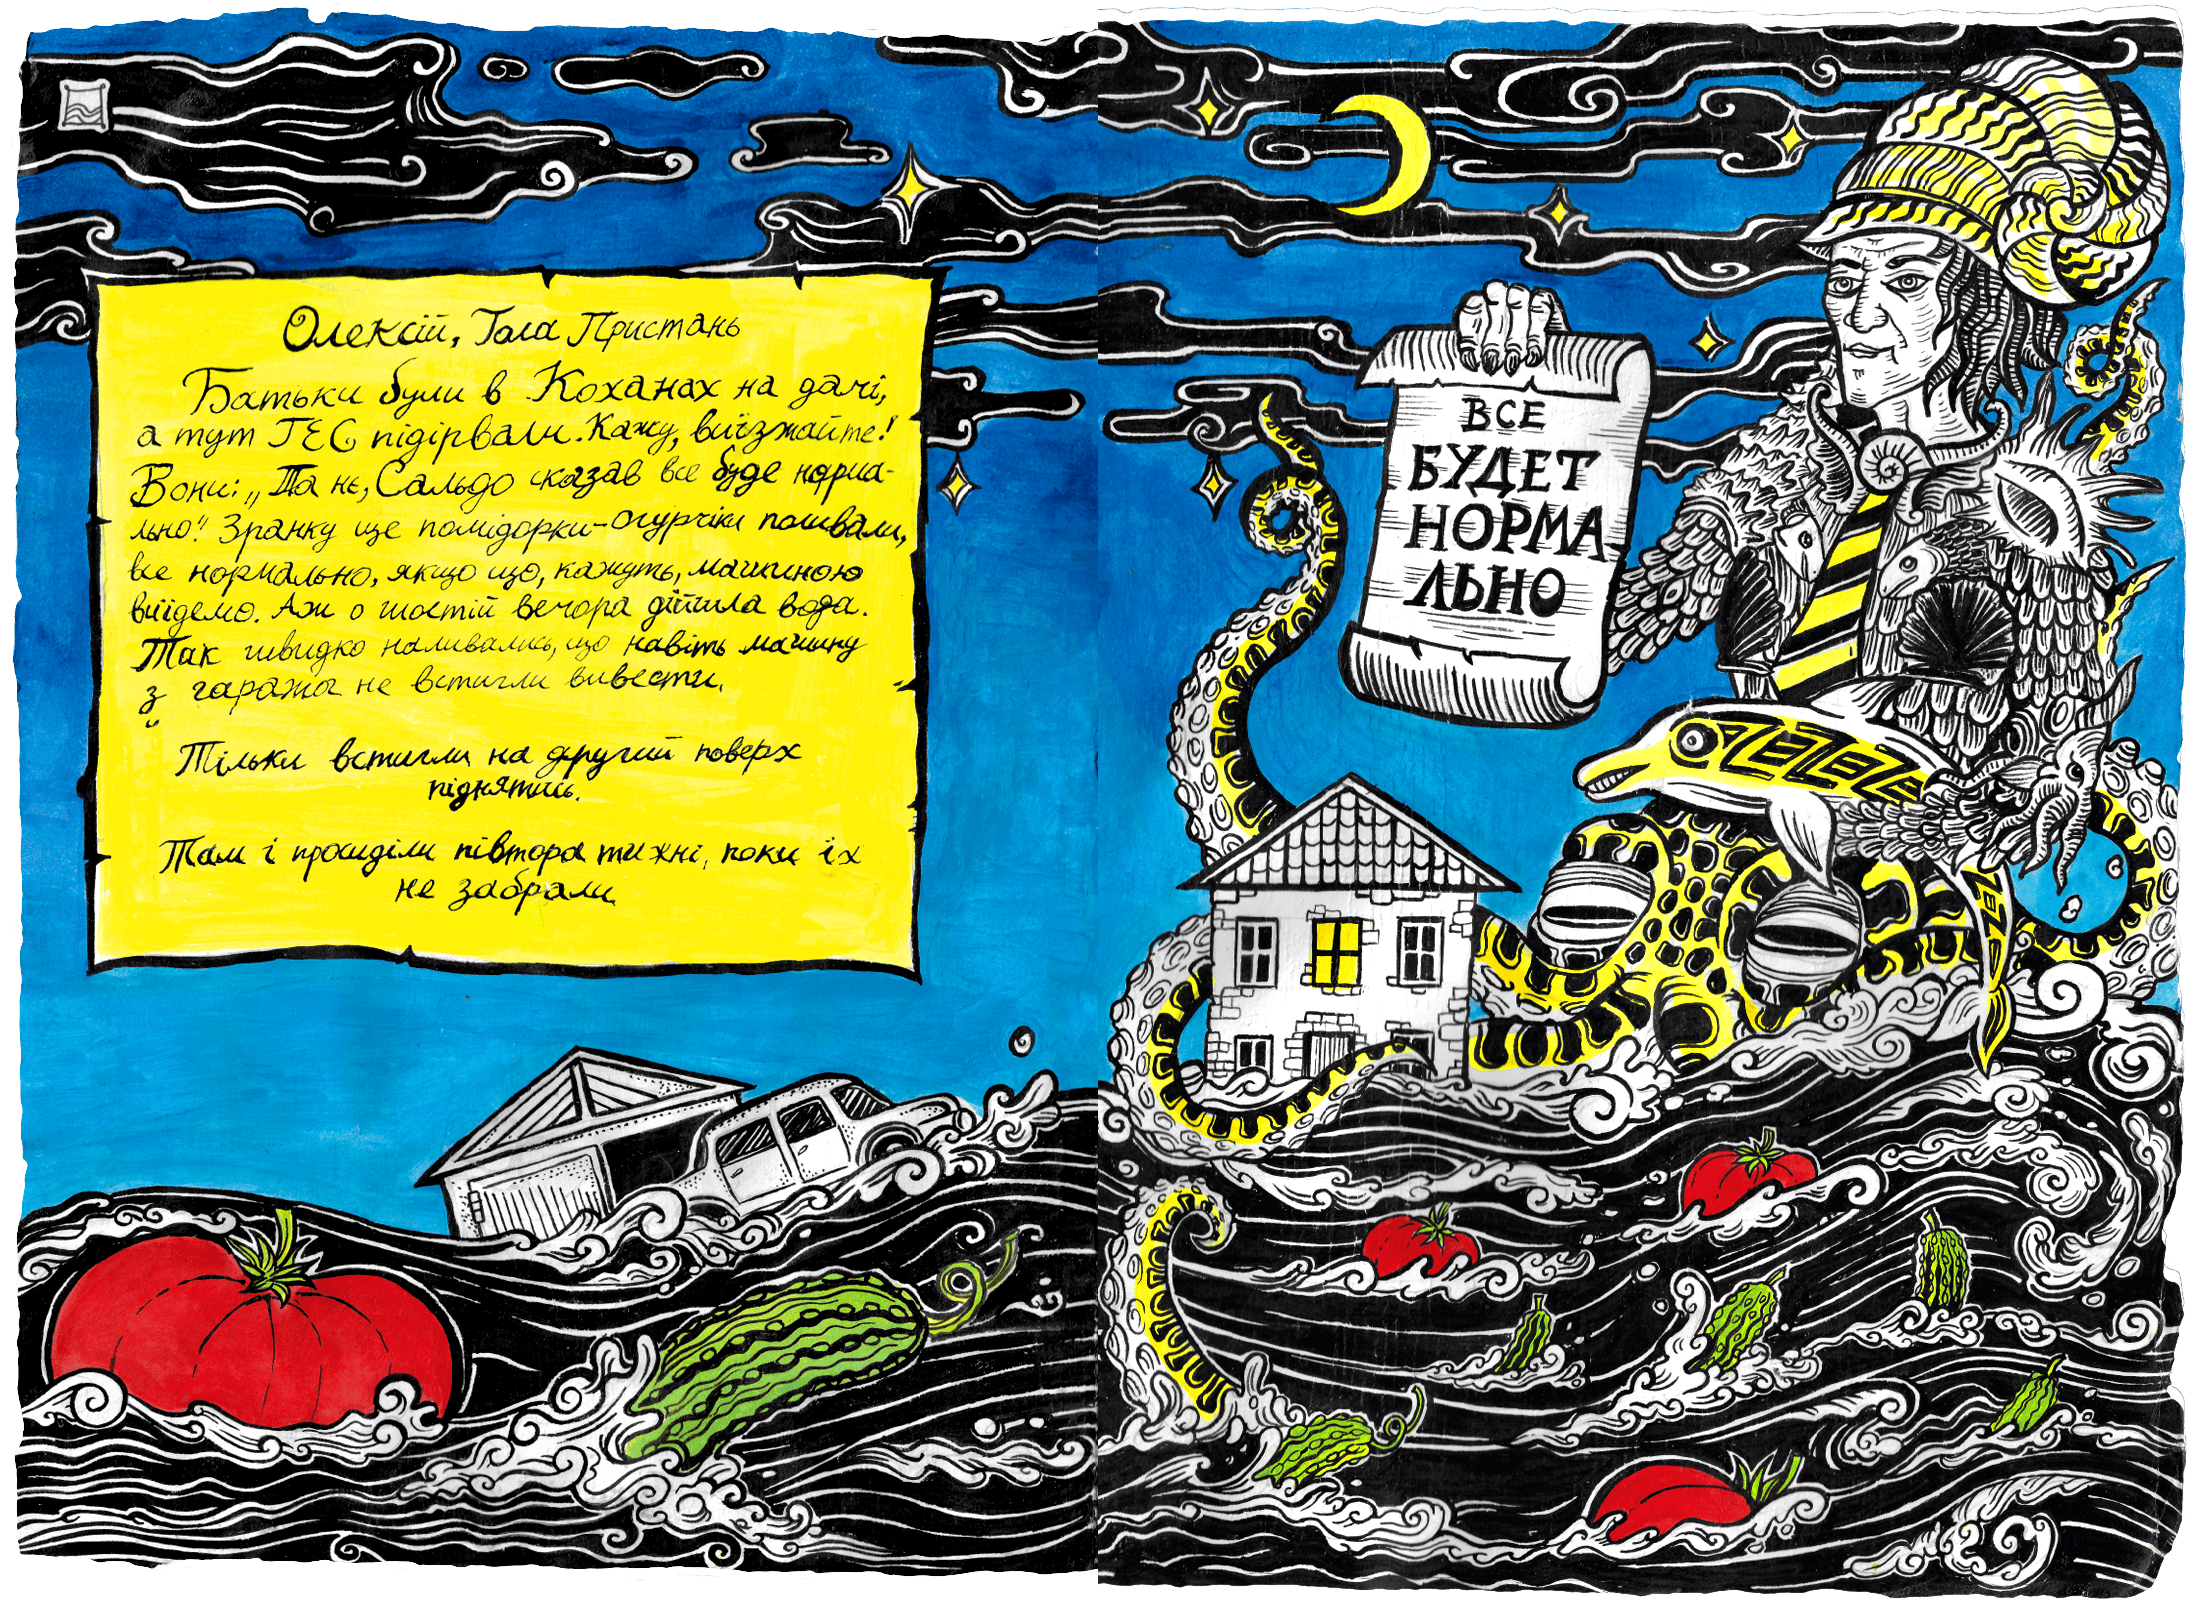 Олексій, Гола Пристань
Батьки були в Коханах на дачі,
а тут ГЕС підірвали. Кажу, виїзжайте!
Вони: „Та нє, Сальдо сказав все буде норма-
льно". Зранку ще помідорки-огурчіки поливали,
все нормально, якщо що, кажуть, машиною
виїдемо. Аж о шостій вечора дійшла вода.
Так швидко наливались, що навіть машину
з гаража не встигли вивести.
Тільки встигли на другий поверх
піднятись.
Там і просиділи півтора тижні, поки їх
не забрали
ВСЕ
БУДЕТ
НОРМА-
ЛЬНО